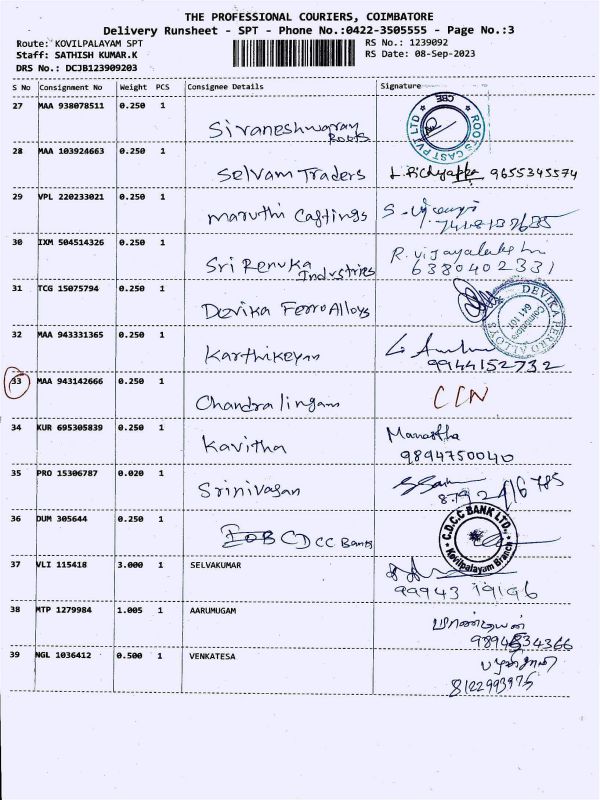 THE PROFESSIONAL COURIERS, COIMBATORE
Delivery Runsheet - SPT - Phone No.:0422-3505555 - Page No.:3
Route: KOVILPALAYAM SPT
RS No.: 1239092
Staff: SATHISH KUMAR.K
RS Date: 08-Sep-2023
DRS No.: DCJB123909203
S No Consignment No Weight PCS Consignee Details Signature
27 MAA 938078511 0.250 1
ROOTS CAST PVT LTD CBE
Roots
28 MAA 103924663 0.250 1
Selvam Traders 9655345574
29 VPL 220233021 0.250 1
Maruthi Castings
30 IXM 504514326 0.250 1
Sri Renuka Industries
R. Vijayalakshmi
6380402331
31 TCG 15075794 0.250 1
Devika Ferro Alloys
DEVIKA FERRO ALLOYS Coimbatore 641 107
32 MAA 943331365 0.250 1
Karthikeyan
9944152732
33 MAA 943142666 0.250 1
Chandralingam
CCN
34 KUR 695305839 0.250 1
Kavitha
9894750040
35 PRO 15306787 0.020 1
Srinivasan
36 DUM 305644 0.250 1
CDCC Bank
C.D.C.C BANK LTD., Kovilpalayam Branch
37 VLI 115418 3.000 1 SELVAKUMAR
99943 19196
38 MTP 1279984 1.005 1 AARUMUGAM
39 NGL 1036412 0.500 1 VENKATESA
8122993975